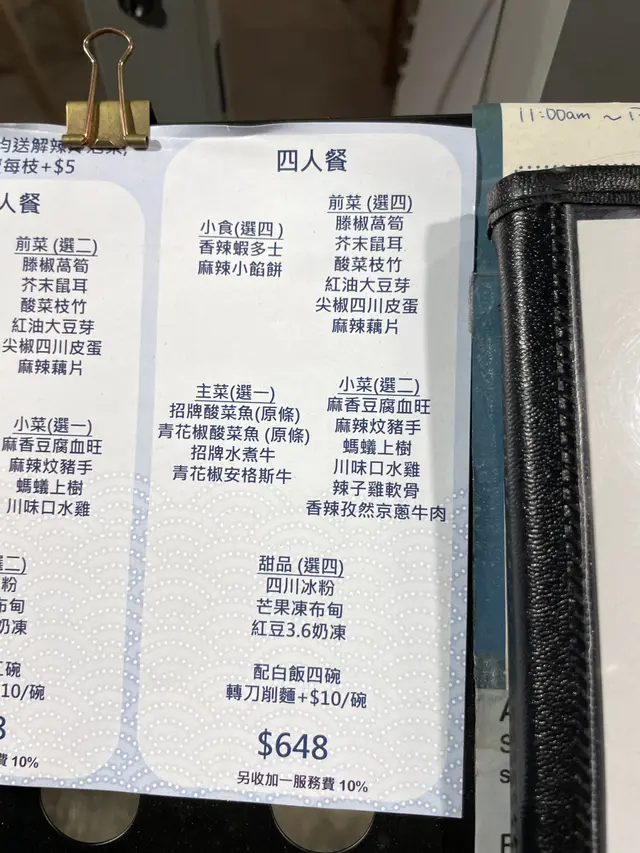 均送解辣
每枝+$5
人餐
前菜 (選二)
滕椒萵筍
芥末鼠耳
酸菜枝竹
紅油大豆芽
尖椒四川皮蛋
麻辣藕片
小菜(選一)
麻香豆腐血旺
麻辣炆豬手
螞蟻上樹
川味口水雞
粉
布甸
奶凍
碗
10/碗
費 10%
四人餐
小食(選四)
香辣蝦多士
麻辣小餡餅
前菜 (選四)
滕椒萵筍
芥末鼠耳
酸菜枝竹
紅油大豆芽
尖椒四川皮蛋
麻辣藕片
主菜(選一)
招牌酸菜魚(原條)
青花椒酸菜魚 (原條)
招牌水煮牛
青花椒安格斯牛
小菜(選二)
麻香豆腐血旺
麻辣炆豬手
螞蟻上樹
川味口水雞
辣子雞軟骨
香辣孜然京蔥牛肉
甜品 (選四)
四川冰粉
芒果凍布甸
紅豆3.6奶凍
配白飯四碗
轉刀削麵+$10/碗
$648
另收加一服務費 10%
11:00am ~